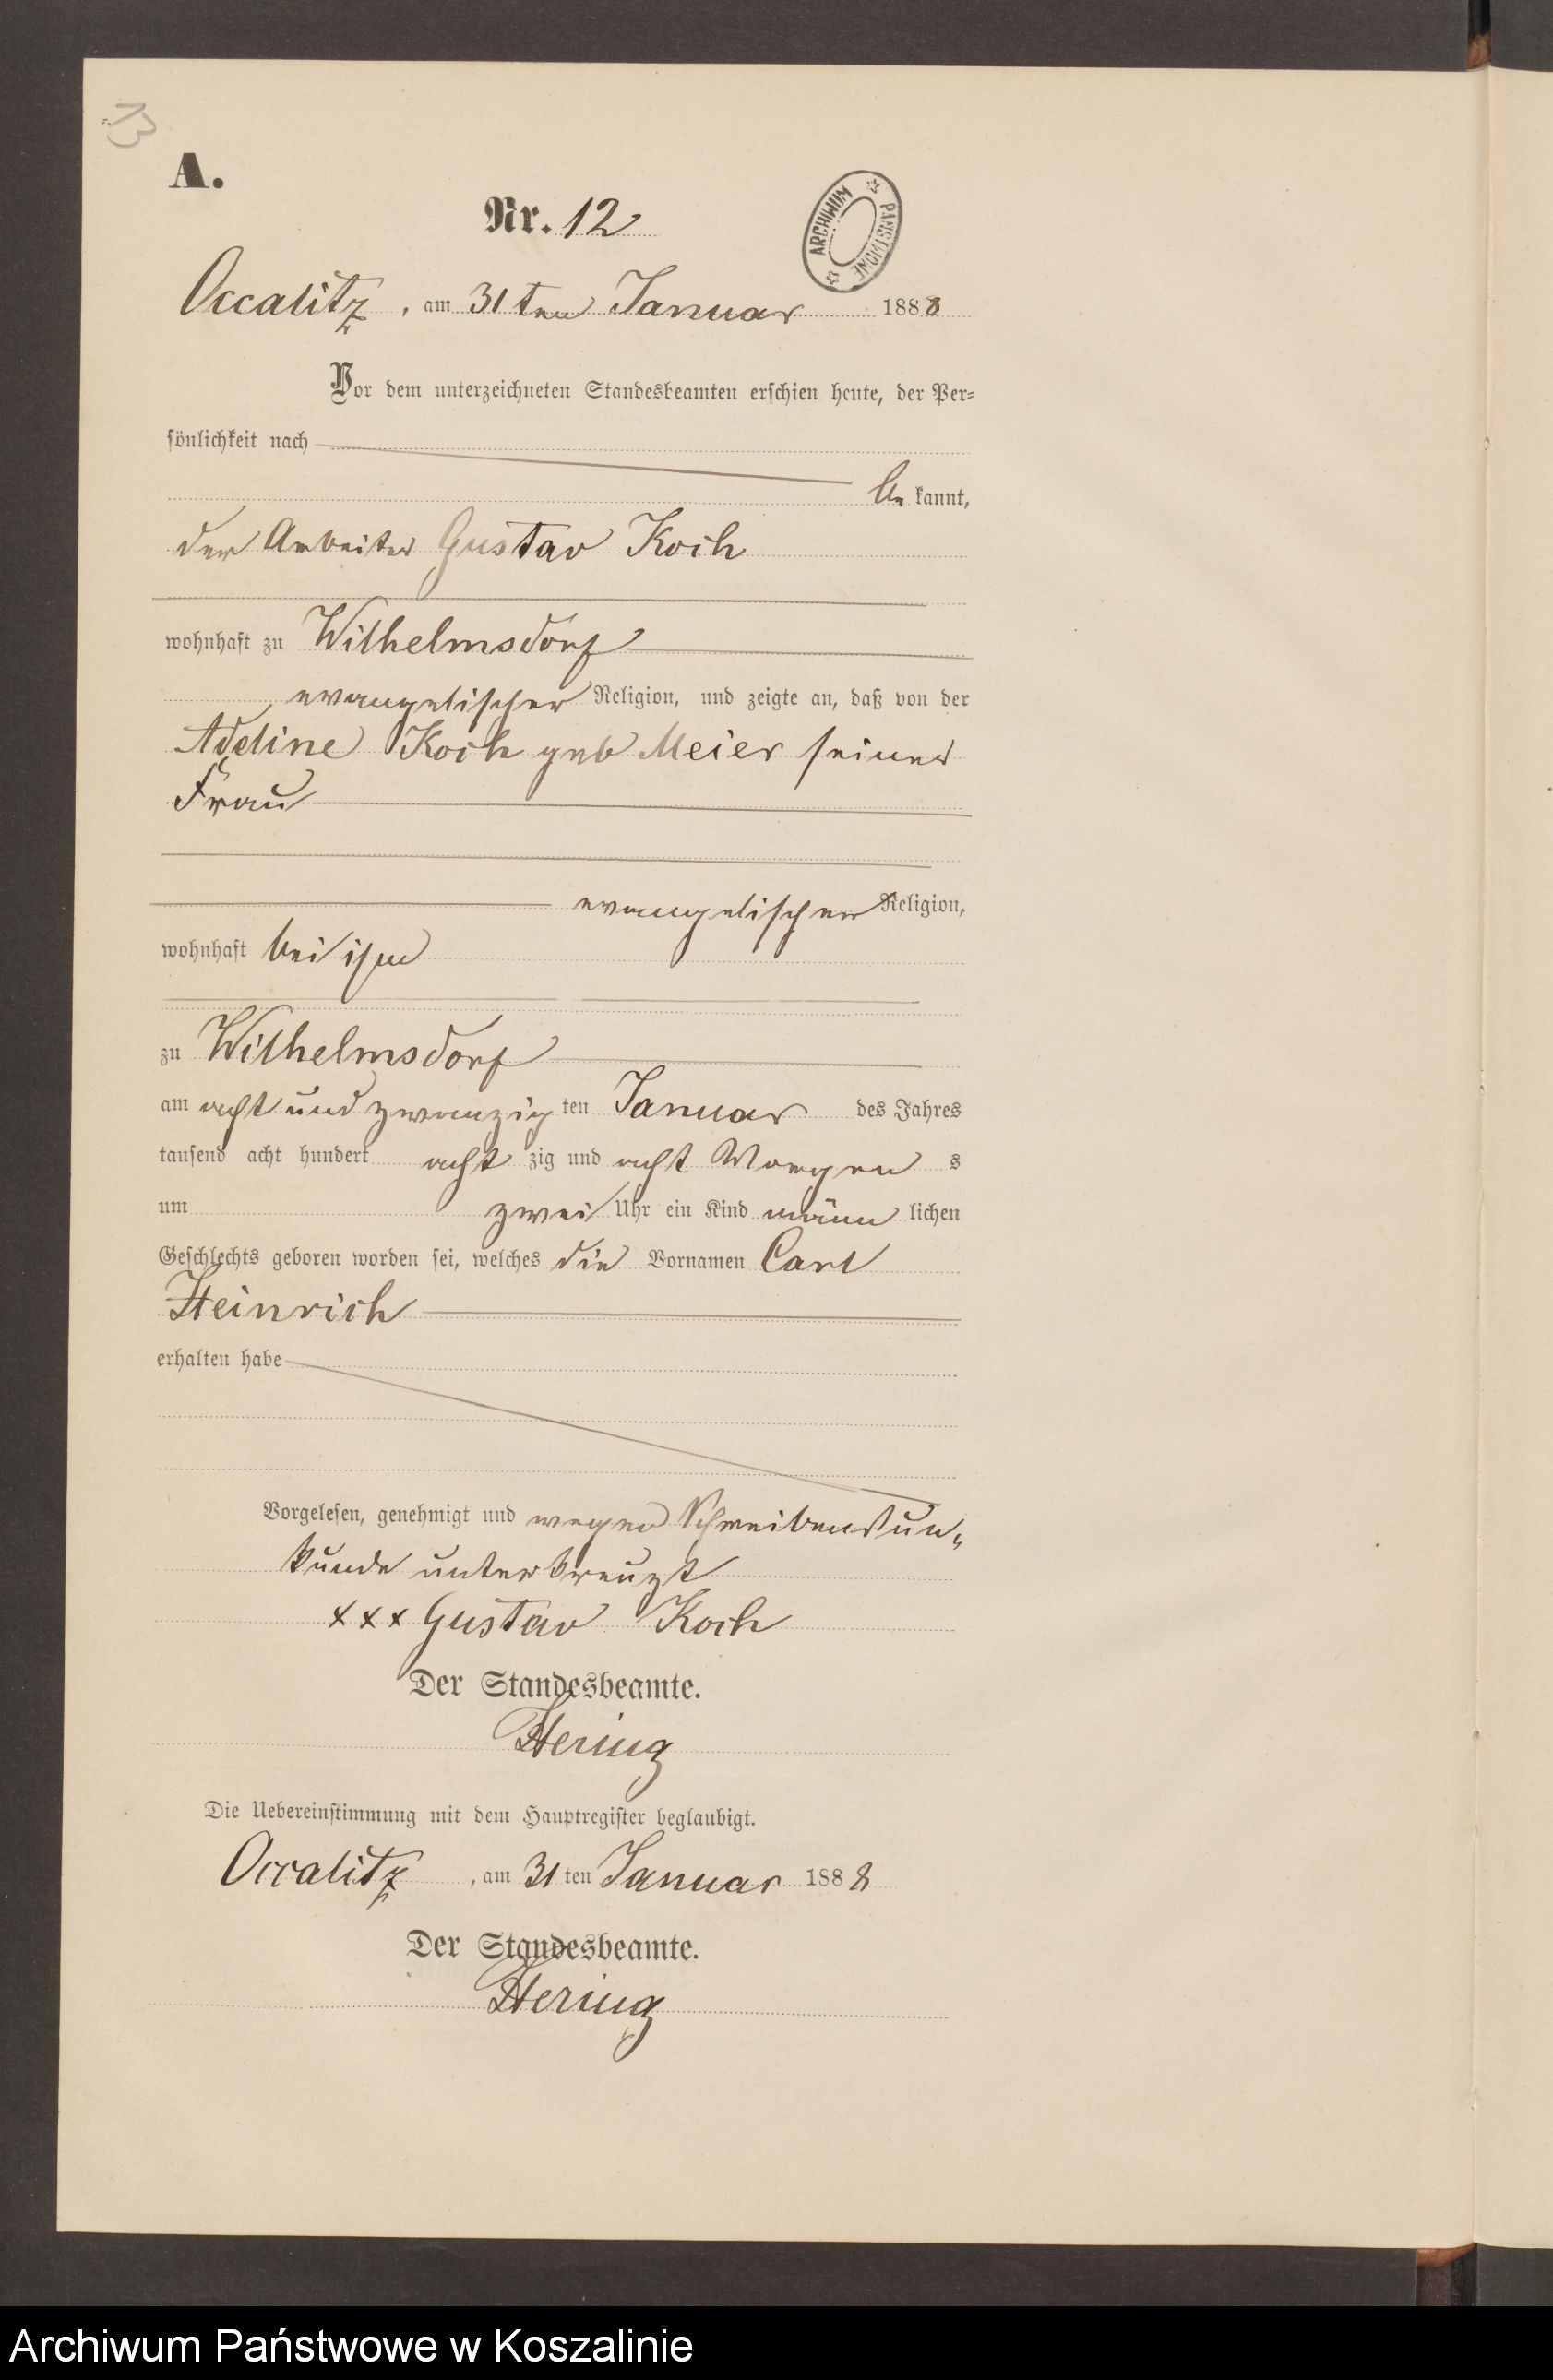 13
A.
Nr. 12
ARCHIWUM PAŃSTWOWE
Occalitz, am 31ten Januar 1888
Vor dem unterzeichneten Standesbeamten erschien heute, der Per=
sönlichkeit nach
be kannt,
der Arbeiter Gustav Koch
wohnhaft zu Wilhelmsdorf
evangelischer Religion, und zeigte an, daß von der
Adeline Koch geb Meier seiner
Frau
evangelischer Religion,
wohnhaft bei ihm
zu Wilhelmsdorf
am acht und zwanzig ten Januar des Jahres
tausend acht hundert acht zig und acht Morgen s
um zwei Uhr ein Kind männ lichen
Geschlechts geboren worden sei, welches die Vornamen Carl
Heinrich
erhalten habe
Vorgelesen, genehmigt und wegen Schreibensun„
kunde unterkreuzt
xxx Gustav Koch
Der Standesbeamte.
Hering
Die Uebereinstimmung mit dem Hauptregister beglaubigt.
Occalitz, am 31 ten Januar 1888
Der Standesbeamte.
Hering
Archiwum Państwowe w Koszalinie